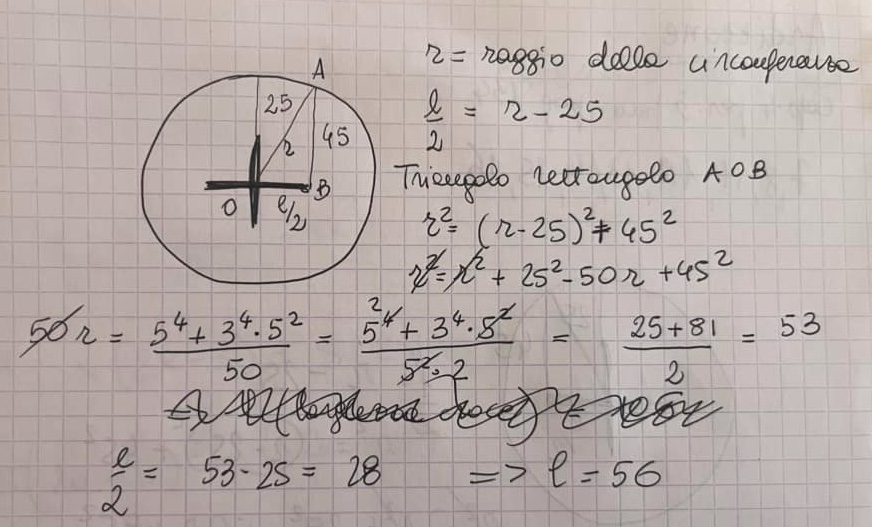 A
25
r
45
O
B
l/2
r = raggio della circonferenza
l/2 = r - 25
Triangolo rettangolo AOB
r² = (r-25)² + 45²
r² = r² + 25² - 50r + 45²
50r = (5⁴ + 3⁴·5²)/50 = (5⁴ ² + 3⁴·5²)/(5²·2) = (25+81)/2 = 53
l/2 = 53 - 25 = 28 => l = 56